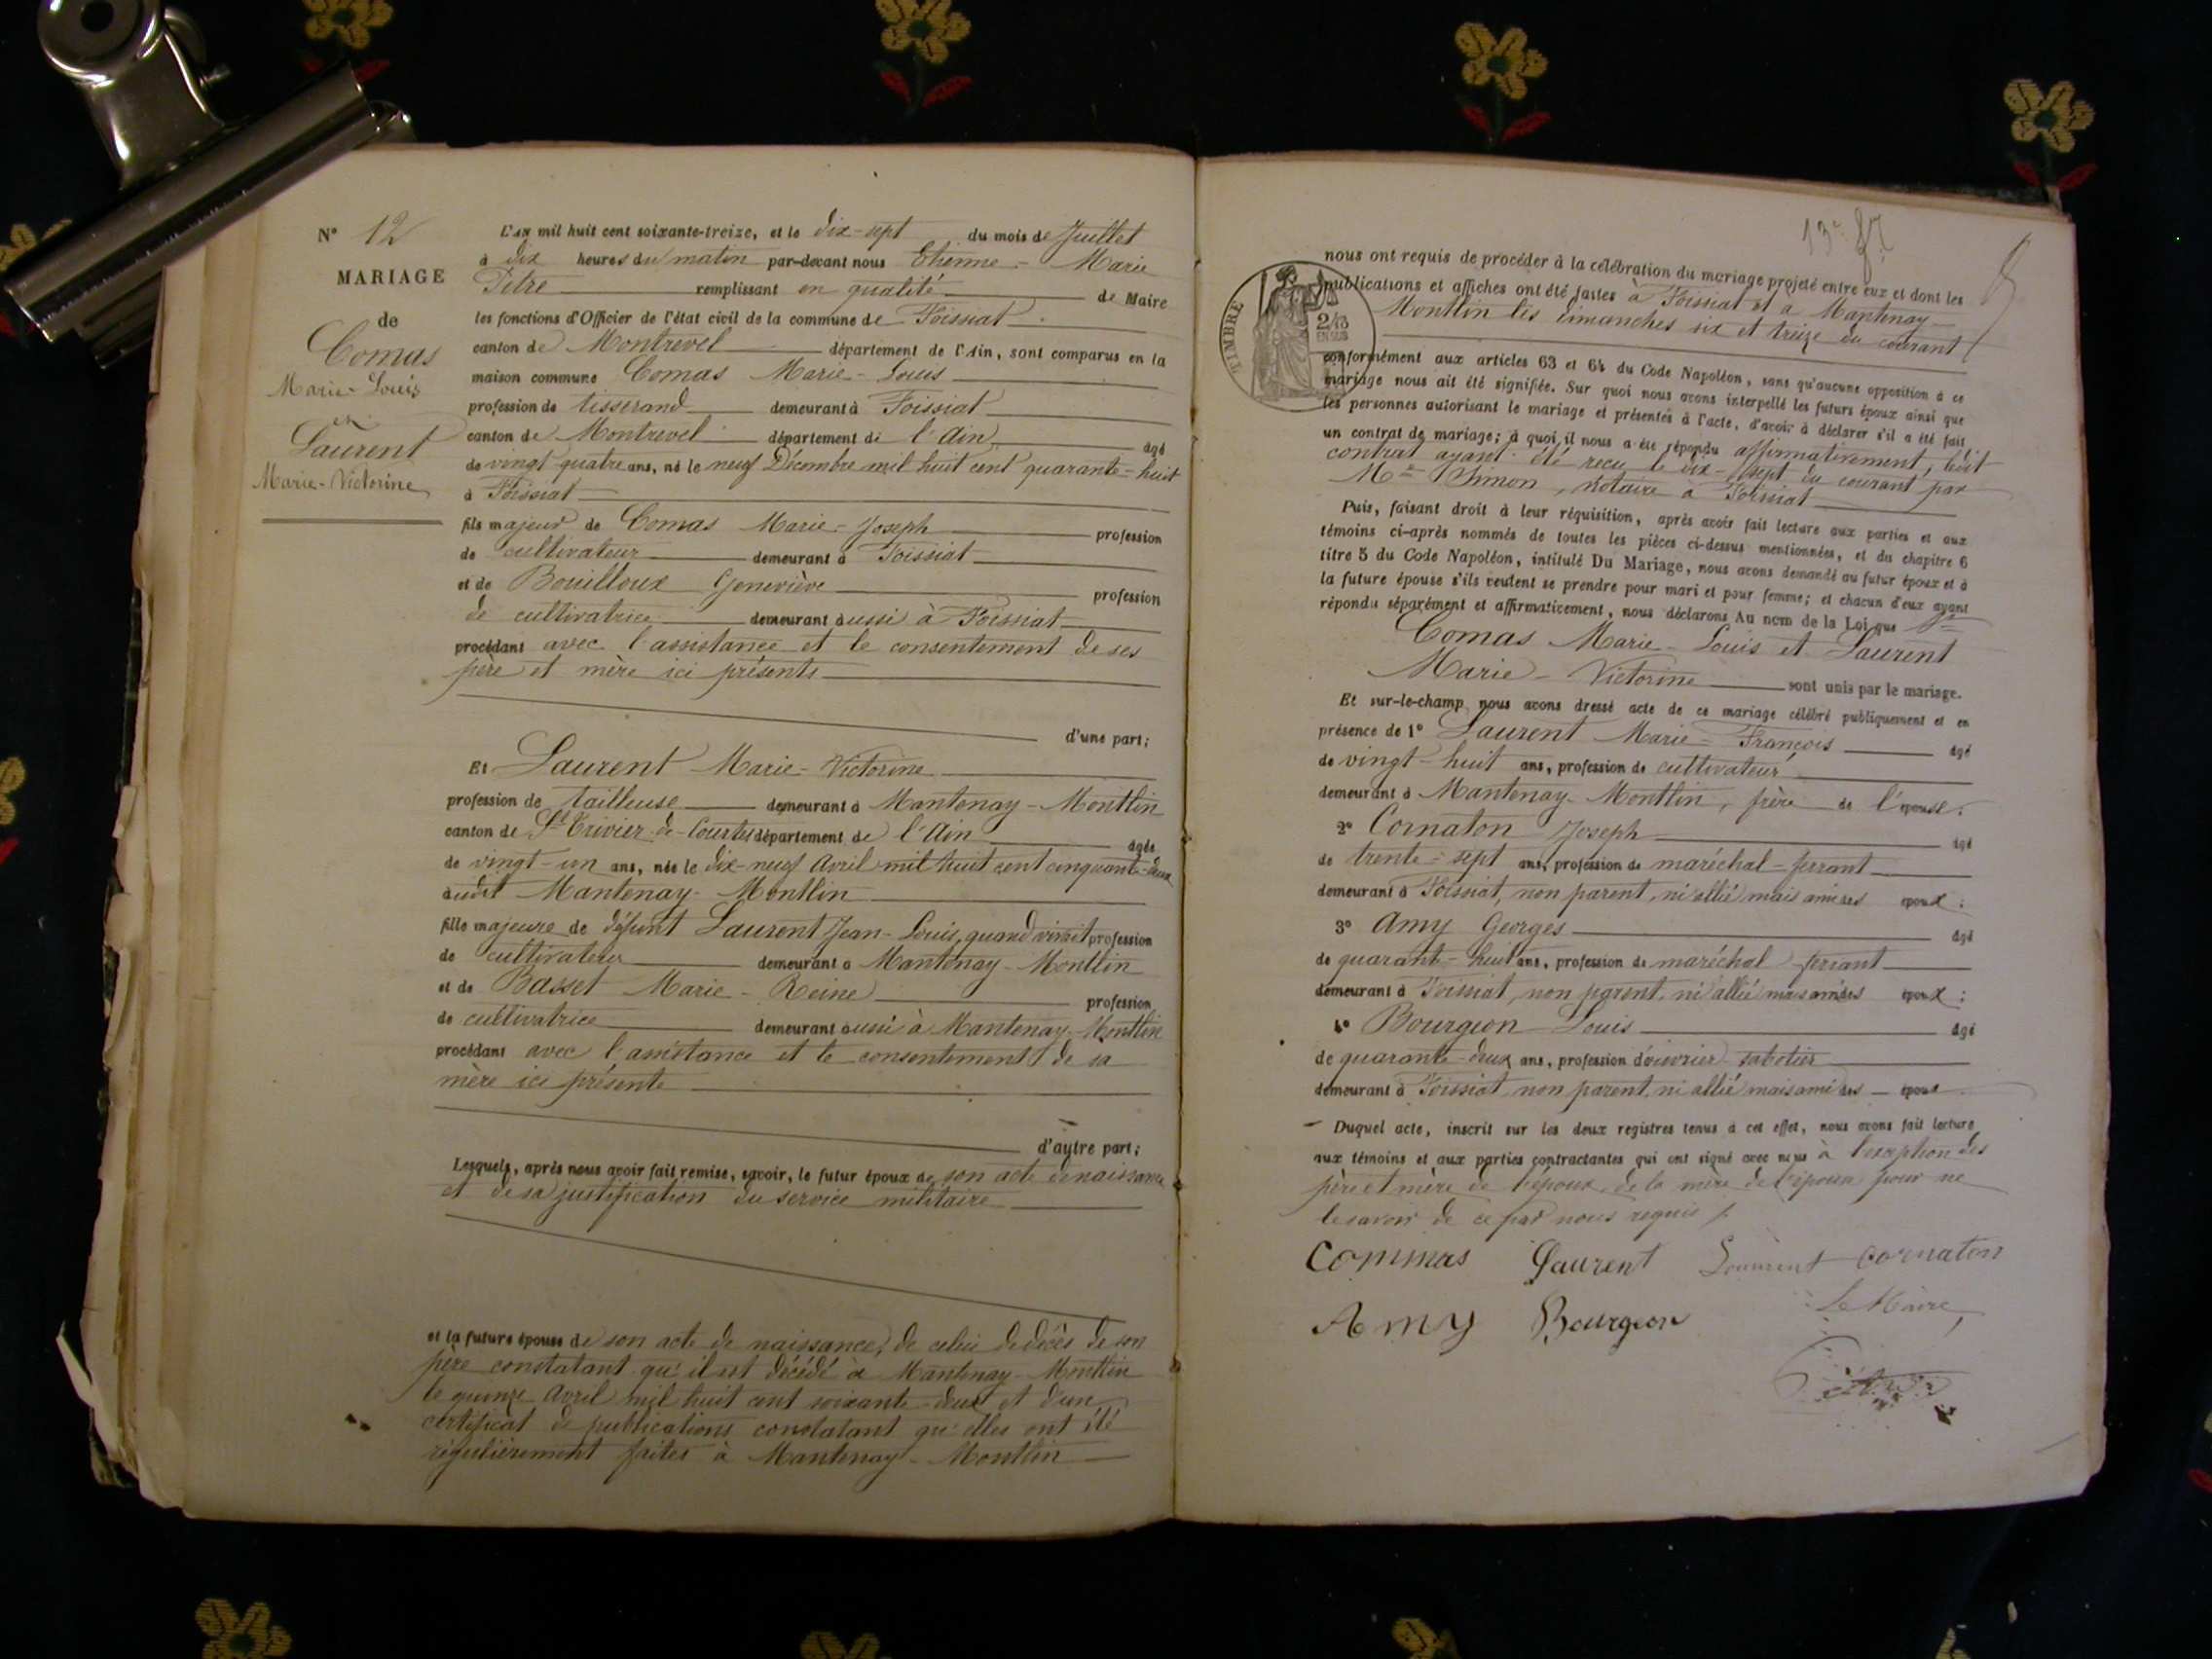 N° 12
MARIAGE
de
Comas
Marie-Louis
et
Laurent
Marie-Victorine
L'an mil huit cent soixante-treize, et le dix-sept du mois de Juillet
à dix heures du matin par-devant nous Etienne-Marie
Pitre remplissant en qualité de Maire
les fonctions d'Officier de l'état civil de la commune de Foissiat
canton de Montrevel département de l'Ain, sont comparus en la
maison commune Comas Marie-Louis
profession de tisserand demeurant à Foissiat
canton de Montrevel département de l'Ain âgé
de vingt quatre ans, né le neuf Décembre mil huit cent quarante-huit
à Foissiat
fils majeur de Comas Marie-Joseph profession
de cultivateur demeurant à Foissiat
et de Bouilloux Geneviève profession
de cultivatrice demeurant aussi à Foissiat
procédant avec l'assistance et le consentement de ses
père et mère ici présents
d'une part;
Et Laurent Marie-Victorine
profession de tailleuse demeurant à Mantenay-Montlin
canton de St Trivier-de-Courtes département de l'Ain âgée
de vingt-un ans, née le dix-neuf Avril mil huit cent cinquante-deux
audit Mantenay-Montlin
fille majeure de défunt Laurent Jean-Louis, quand vivait profession
de cultivateur demeurant à Mantenay-Montlin
et de Basset Marie-Reine profession
de cultivatrice demeurant aussi à Mantenay-Montlin
procédant avec l'assistance et le consentement de sa
mère ici présente
d'autre part;
Lesquels, après nous avoir fait remise, savoir, le futur époux de son acte de naissance
et de sa justification du service militaire
et la future épouse de son acte de naissance, de celui de décès de son
père constatant qu'il est décédé à Mantenay-Montlin
le quinze Avril mil huit cent soixante-deux et d'un
certificat de publications constatant qu'elles ont été
régulièrement faites à Mantenay-Montlin
13e
TIMBRE
nous ont requis de procéder à la célébration du mariage projeté entre eux et dont les
publications et affiches ont été faites à Foissiat et à Mantenay-
Montlin les dimanches six et treize du courant
conformément aux articles 63 et 64 du Code Napoléon, sans qu'aucune opposition à ce
mariage nous ait été signifiée. Sur quoi nous avons interpellé les futurs époux ainsi que
les personnes autorisant le mariage et présentes à l'acte, d'avoir à déclarer s'il a été fait
un contrat de mariage; à quoi il nous a été répondu affirmativement, ledit
contrat ayant été reçu le dix-sept du courant par
Me Simon, notaire à Foissiat
Puis, faisant droit à leur réquisition, après avoir fait lecture aux parties et aux
témoins ci-après nommés de toutes les pièces ci-dessus mentionnées, et du chapitre 6
titre 5 du Code Napoléon, intitulé Du Mariage, nous avons demandé au futur époux et à
la future épouse s'ils veulent se prendre pour mari et pour femme; et chacun d'eux ayant
répondu séparément et affirmativement, nous déclarons Au nom de la Loi que
Comas Marie-Louis et Laurent
Marie-Victorine sont unis par le mariage.
Et sur-le-champ nous avons dressé acte de ce mariage célébré publiquement et en
présence de 1° Laurent Marie-François âgé
de vingt-huit ans, profession de cultivateur
demeurant à Mantenay-Montlin, frère de l'épouse;
2° Cornaton Joseph âgé
de trente-sept ans, profession de maréchal-ferrant
demeurant à Foissiat, non parent, ni allié mais ami des époux;
3° Amy Georges âgé
de quarante-huit ans, profession de maréchal-ferrant
demeurant à Foissiat, non parent, ni allié mais ami des époux;
4° Bourgeon Louis âgé
de quarante-deux ans, profession d'ouvrier sabotier
demeurant à Foissiat, non parent, ni allié mais ami des époux
Duquel acte, inscrit sur les deux registres tenus à cet effet, nous avons fait lecture
aux témoins et aux parties contractantes qui ont signé avec nous à l'exception des
père et mère de l'époux, de la mère de l'épouse pour ne
le savoir de ce par nous requis
Commas Laurent Laurent Cornaton
Amy Bourgeon Le Maire,